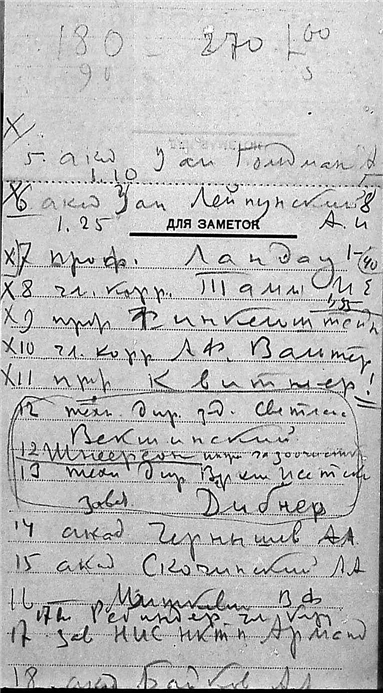 180 — 270 L 00
90 5
X
5. акд Уан Гольдман А
1.10
X6 акд Уан Лейпунский 8
1.25 А.И
ДЛЯ ЗАМЕТОК
X7 проф. Ландау 1-40
X8 чл. корр. Тамм И Е
X9 прф Финкельштейн
X10 чл. корр Л.Ф. Вальтер
X11 прф Квиттнер!
12 техн. дир. зд. Светлан.
Векшинский
12 Шнеерсон
13 техн дир
завод Дибнер
14 акад Чернышев АА
15 акд Скочинский АА
16 — Миткевич ВФ
17а Ребиндер. чл. корр
17 зав НИС НКТП Арманд
18. акд Байков АА